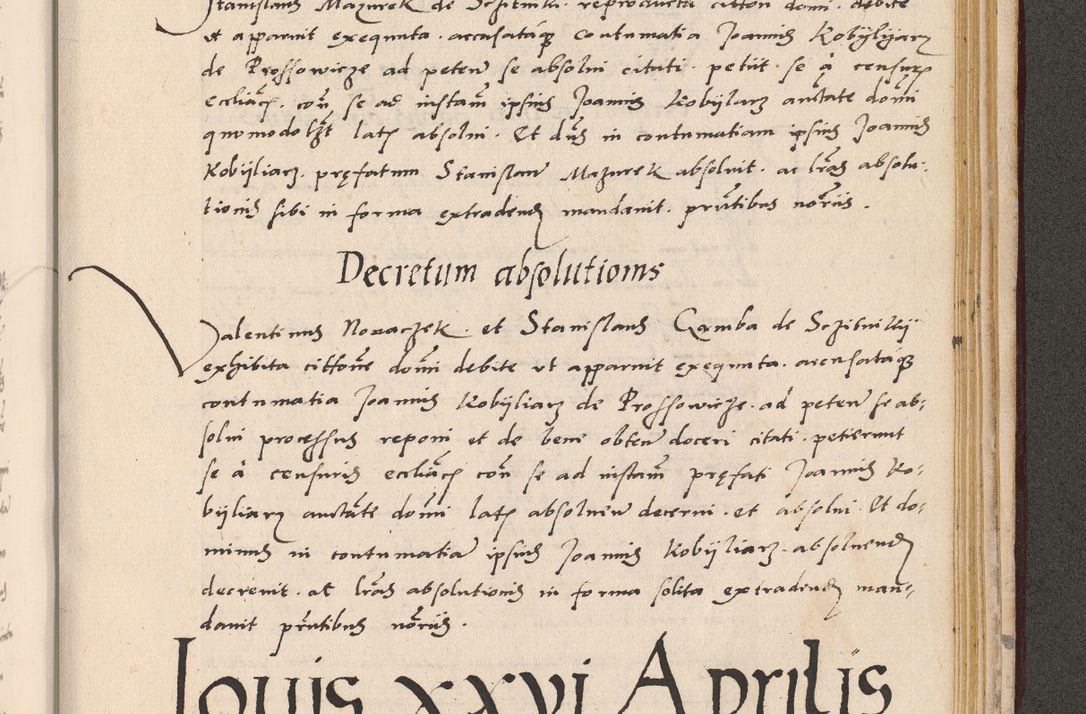 Stanislaus Mazurek de Sczitniki reproducta citton domi debite
ut apparuit exequuta accusataq contumatia Joannis Kobÿlÿarz
de Prossowicze ad peten se absolvi citati petiit se à censuris
eccliacis con se ad instam ipsius Joannis Kobÿlarz auctate domi
quomodolzt latis absolvi Et dus in contumatiam ipsius Joannis
Kobÿliarz pręfatum Stanislaum Mazurek absolvit ac lras absolu-
tionis sibi in forma extradendas mandavit pntibus notriis
Decretum absolutionis
Valentinus Novaczek et Stanislaus Gamba de Sczitnikij
exhibita citione domi debite ut apparuit exequuta accusataq
contumatia Joannis Kobÿliarz de Prossowicze ad peten se ab-
solvi processus reponi et de beni obten doceri citati petierunt
se à censuris eccliacis con se ad instam pręfati Joannis Ko-
bÿliarz auctate domi latis absolven decerni et absolvi Et do-
minus in contumatia ipsius Joannis Kobÿliarz absolvendos
decrevit ac lras absolutionis in forma solita extradendas man-
davit pntibus notriis
Iouis xxvi Aprilis